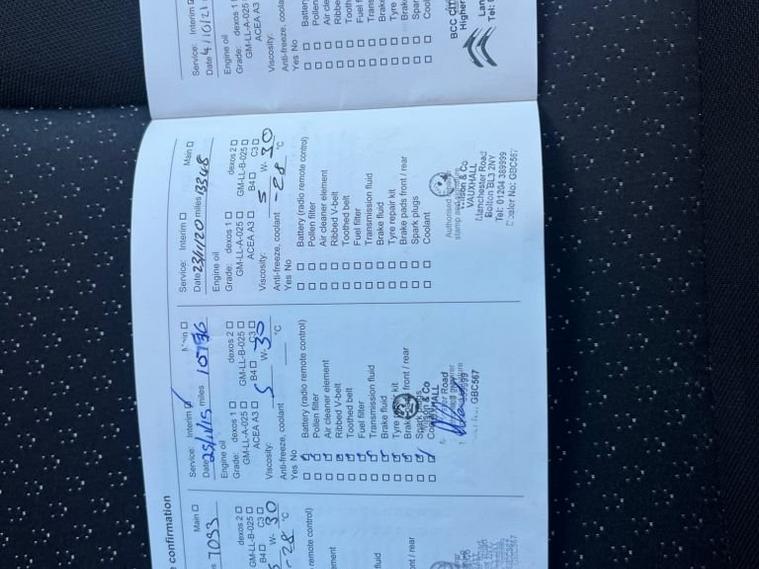 confirmation
Main
7093
dexos 2
GM-LL-B-025
B4 C3
W- 30
-28 °C
remote control)
ement
fluid
ont / rear
Service: Interim
Date 25/1/15 miles
Engine oil
Grade: dexos 1 dexos 2
GM-LL-A-025 GM-LL-B-025
ACEA A3 B4 C3
Viscosity: 5 W- 30
Anti-freeze, coolant °C
Yes No
Battery (radio remote control)
Pollen filter
Air cleaner element
Ribbed V-belt
Toothed belt
Fuel filter
Transmission fluid
Brake fluid
Tyre kit
front / rear
& Co
Road
GBC567
Service: Interim Main
Date 23/11/20 miles 13348
Engine oil
Grade: dexos 1 dexos 2
GM-LL-A-025 GM-LL-B-025
ACEA A3 B4 C3
Viscosity: 5 W- 30
Anti-freeze, coolant -28 °C
Yes No
Battery (radio remote control)
Pollen filter
Air cleaner element
Ribbed V-belt
Toothed belt
Fuel filter
Transmission fluid
Brake fluid
Tyre repair kit
Brake pads front / rear
Spark plugs
Coolant
Authorised
stamp
& Co
VAUXHALL
Manchester Road
Bolton BL3 2NY
Tel: 01204 389999
No: GBC567
Service: Interim
Date 4/10/21
Engine oil
Grade: dexos 1
GM-LL-A-025
ACEA A3
Viscosity:
Anti-freeze, coolant
Yes No
Battery
Pollen
Air clean
Ribbed
Toothed
Fuel
Trans
Brake
Tyre
Brake
Spark
Cool
BCC
Higher
Lan
Tel: